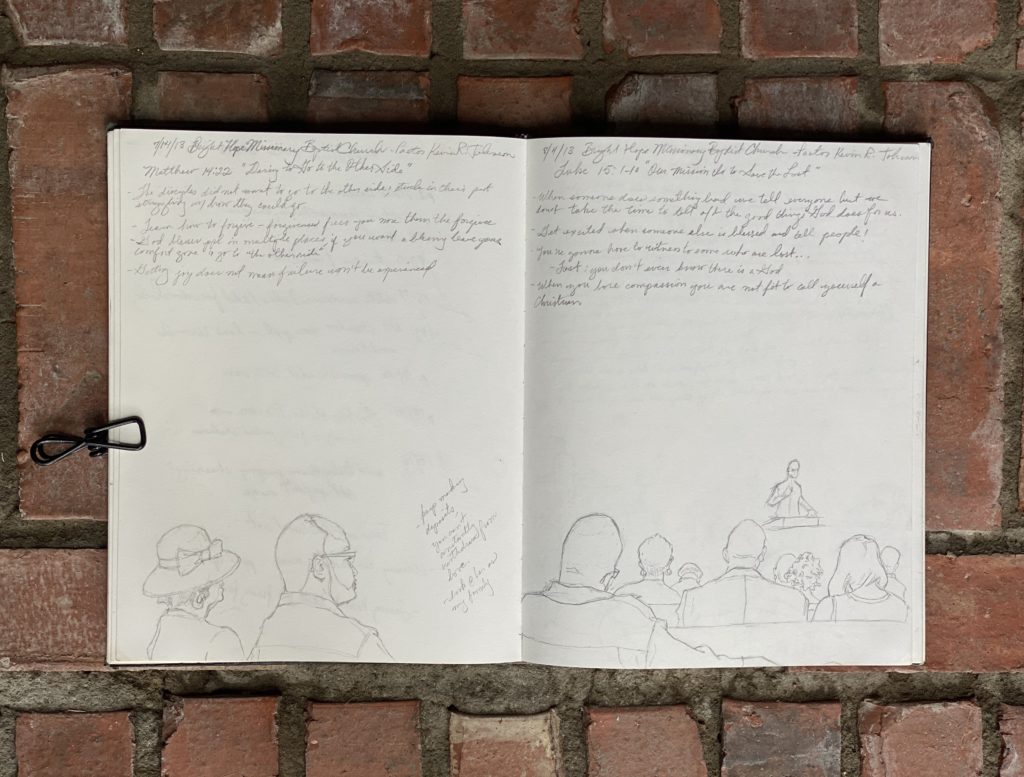 7/14/13 Bright Hope Missionary Baptist Church - Pastor Kevin R. Johnson
Matthew 14:22 "Daring to Go to the Other Side"
- The disciples did not want to go to the other side; stuck in their past
struggling w/ how they could go.
- Learn how to forgive - forgiveness frees you more than the forgive
- God blesses you in multiple places if you want a blessing leave your
comfort zone & go to "the other side"
- Getting joy does not mean failure won't be experienced
- keep making
deposits
you can't
constantly
withdraw from
love.
my family
8/4/13 Bright Hope Missionary Baptist Church - Pastor Kevin R. Johnson
Luke 15:1-10 "Our Mission Is to Love the Lost"
- When someone does something bad we tell everyone but we
don't take the time to tell of the good things God does for us.
- Get excited when someone else is blessed and tell people!
You're gonna have to witness to some who are lost...
- Lost: you don't even know there is a God
- When you lose compassion you are not fit to call yourself a
Christian